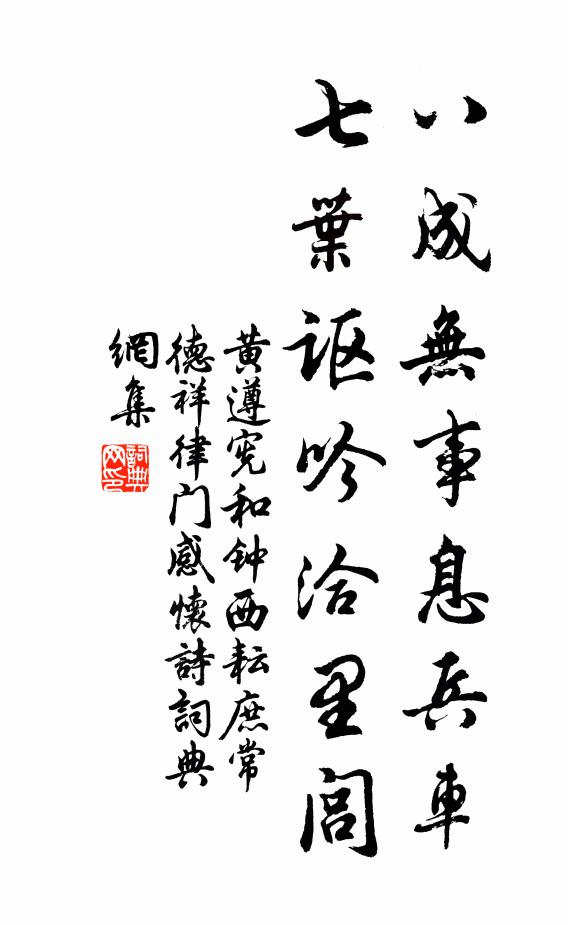 八成無事息兵車
七葉謳吟洽里閭
黄遵宪和钟西耘庶常
德祥律门感懷詩詞典
網集
詞典网印